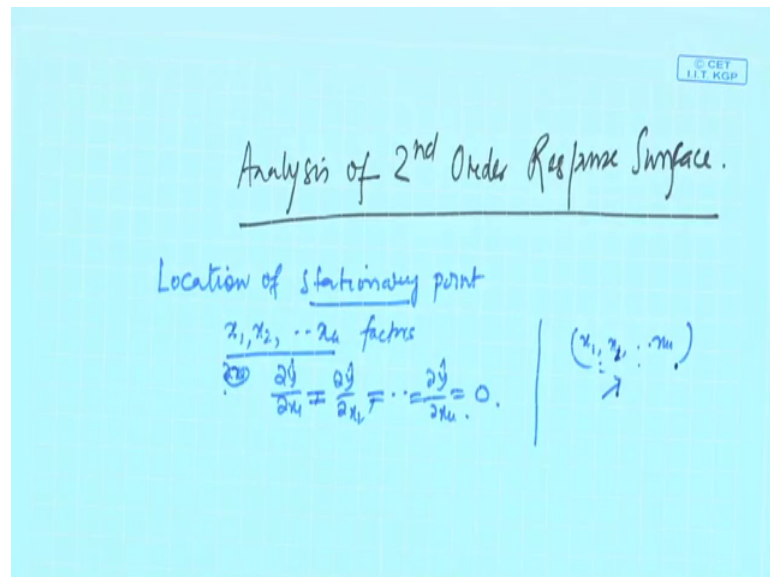 © CET
I.I.T. KGP
Analysis of 2nd Order Response Surface.
Location of stationary point
x₁, x₂, ... xₖ factors
∂ŷ/∂x₁ = ∂ŷ/∂x₂ = ... = ∂ŷ/∂xₖ = 0.
(x₁, x₂, ... xₖ)